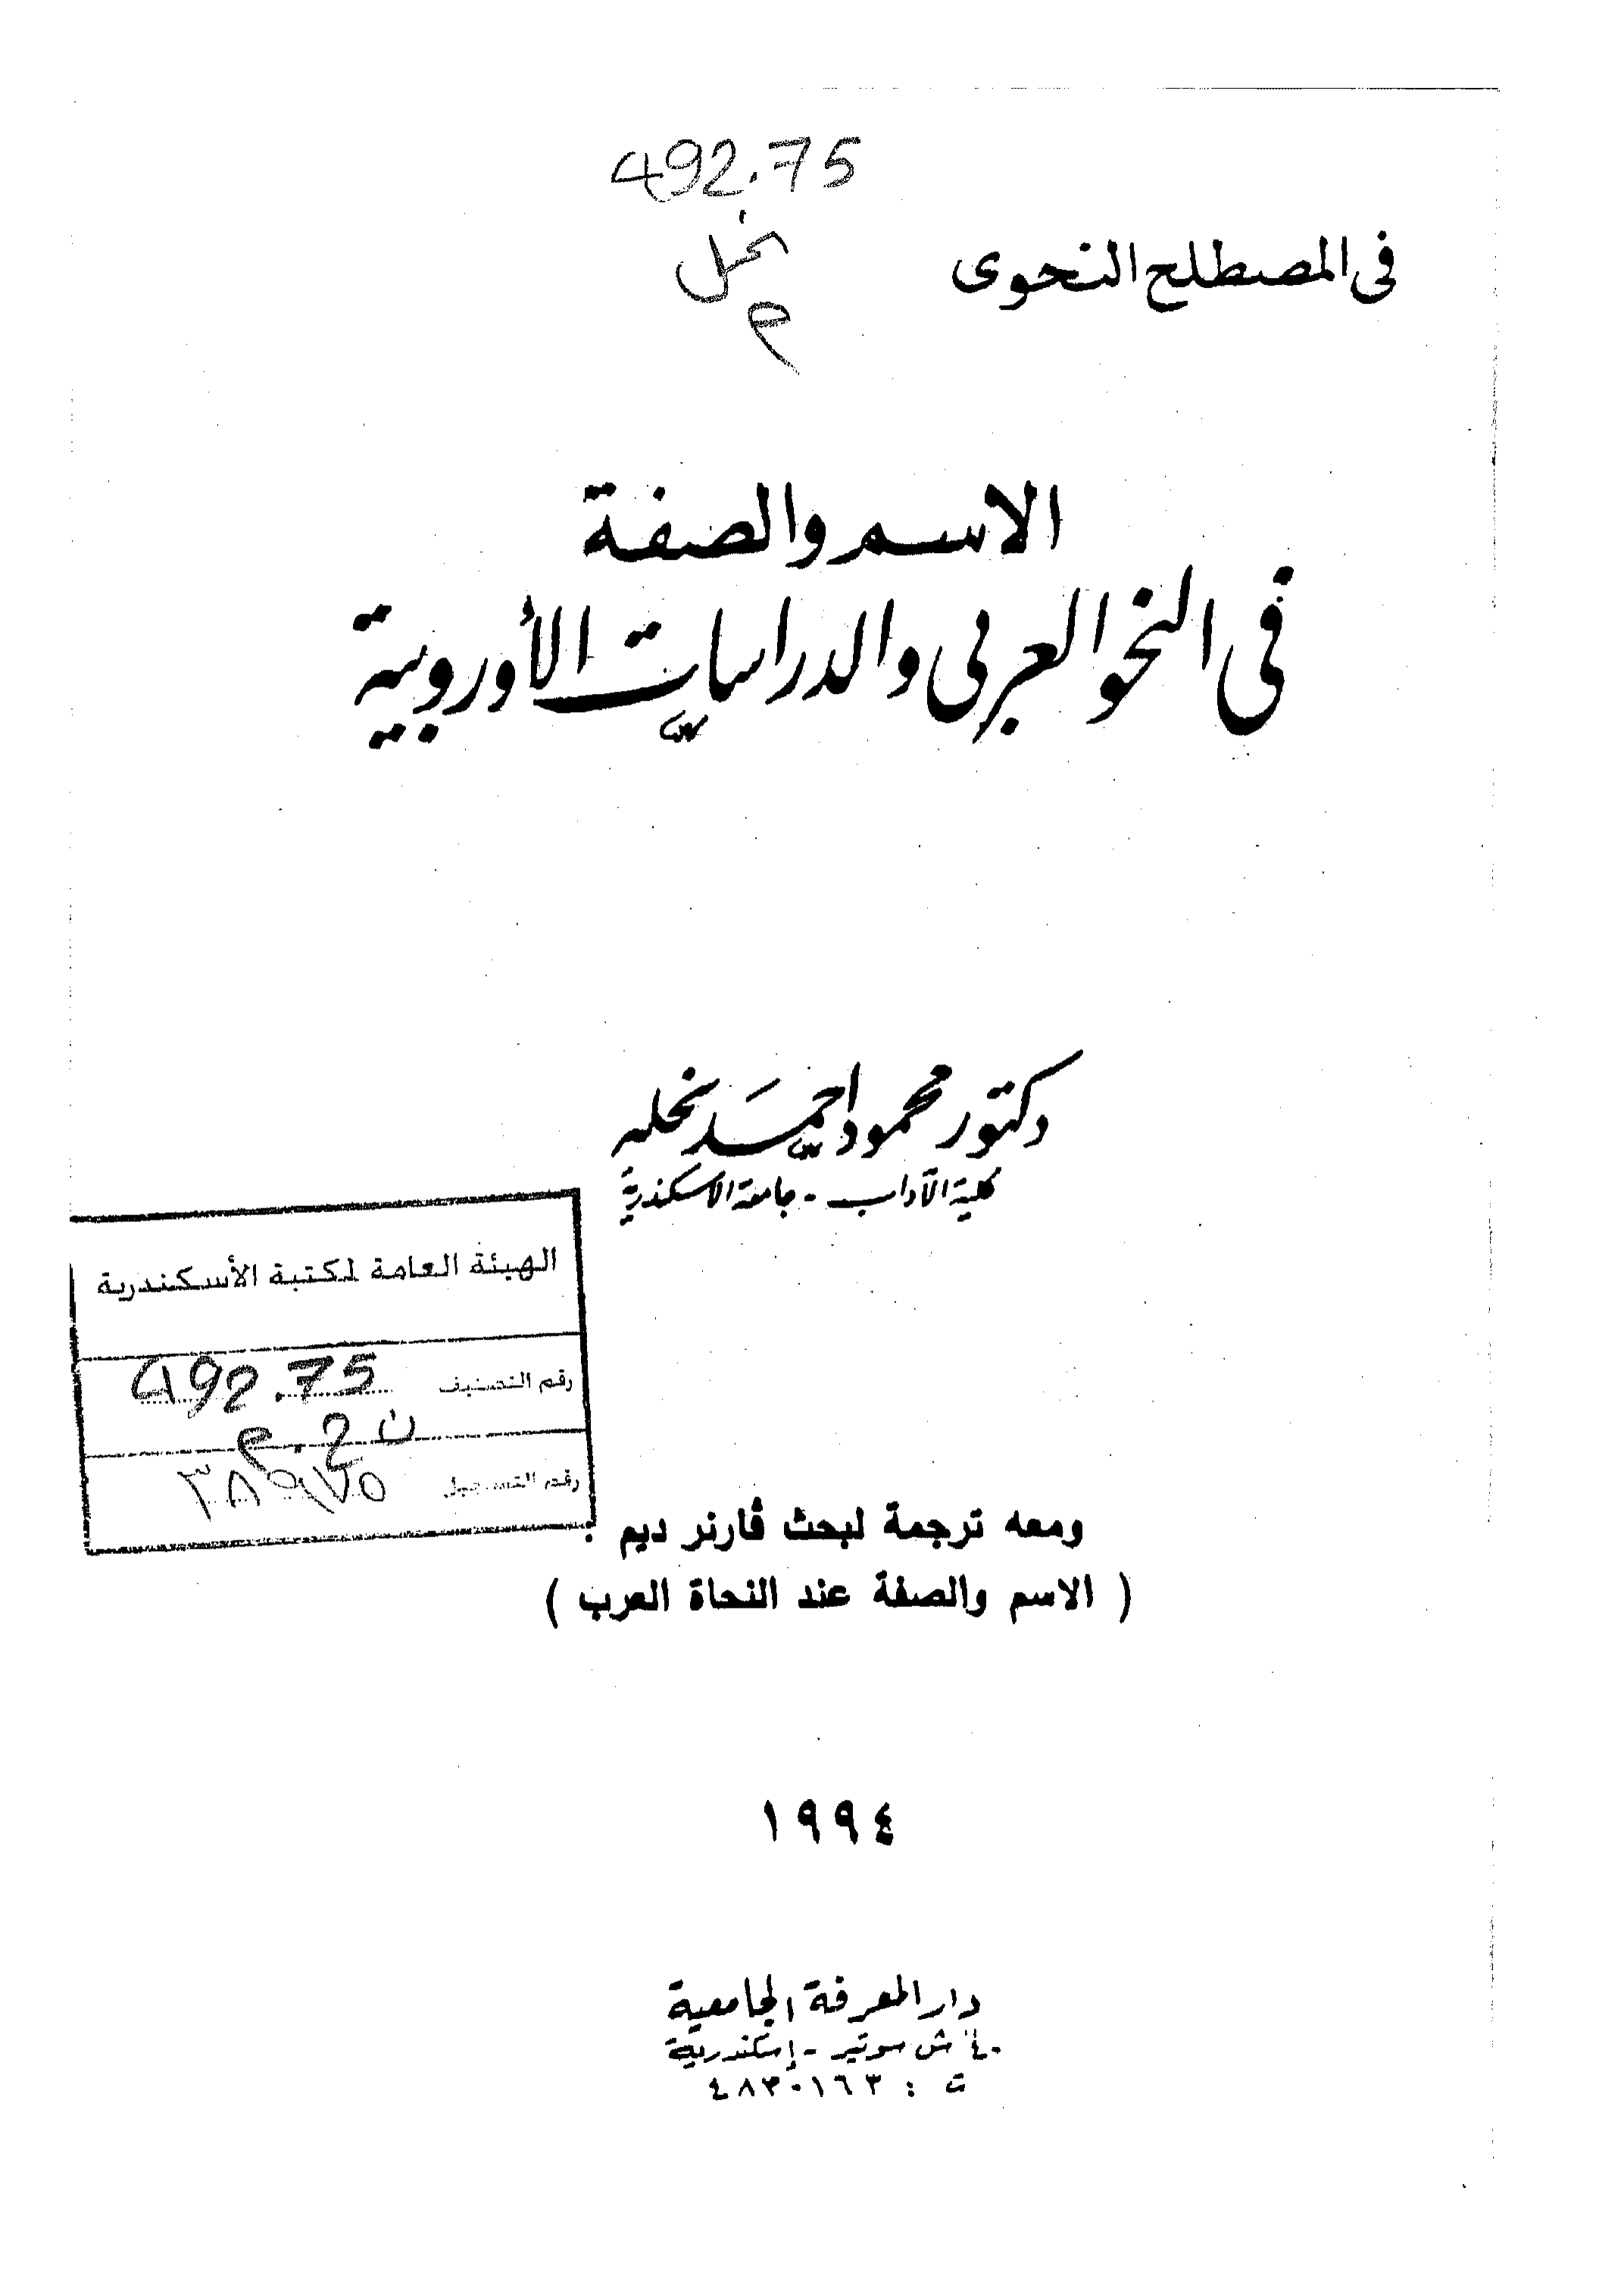 492.75
في المصطلح النحوى
نخل
م
الاسم والصفة
في النحو العربي والدراسات الأوروبية
دكتور محمود احمد نحله
كلية الآداب - جامعة الاسكندرية
الهيئة العامة لمكتبة الأسكندرية
رقم التصنيف 492.75
رقم التسجيل ٣٨٩٧٥
ومعه ترجمة لبحث ڤارنر ديم .
( الاسم والصفة عند النحاة العرب )
١٩٩٤
دار المعرفة الجامعية
٤٠ ش سوتير - إسكندرية
ت : ٤٨٣٠١٦٣